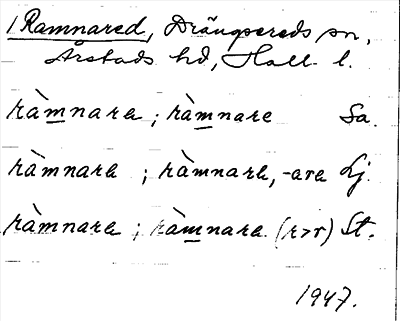 /Ramnared, Drängsereds sn,
Årstads hd, Hall. l.
ràmnara ; ràmnare Sa.
ràmnara ; ràmnara, -are Lj.
ràmnara ; ràmnara (r>r) St.
1947.